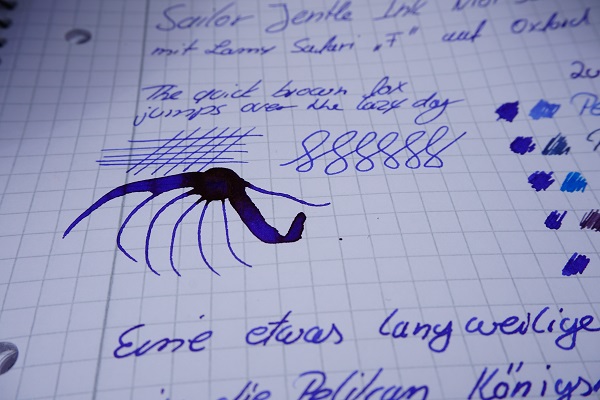 Sailor Jentle Ink
mit Lamy Safari „F" auf Oxford
The quick brown fox
jumps over the lazy dog
Eine etwas langweilige
die Pelikan Königs